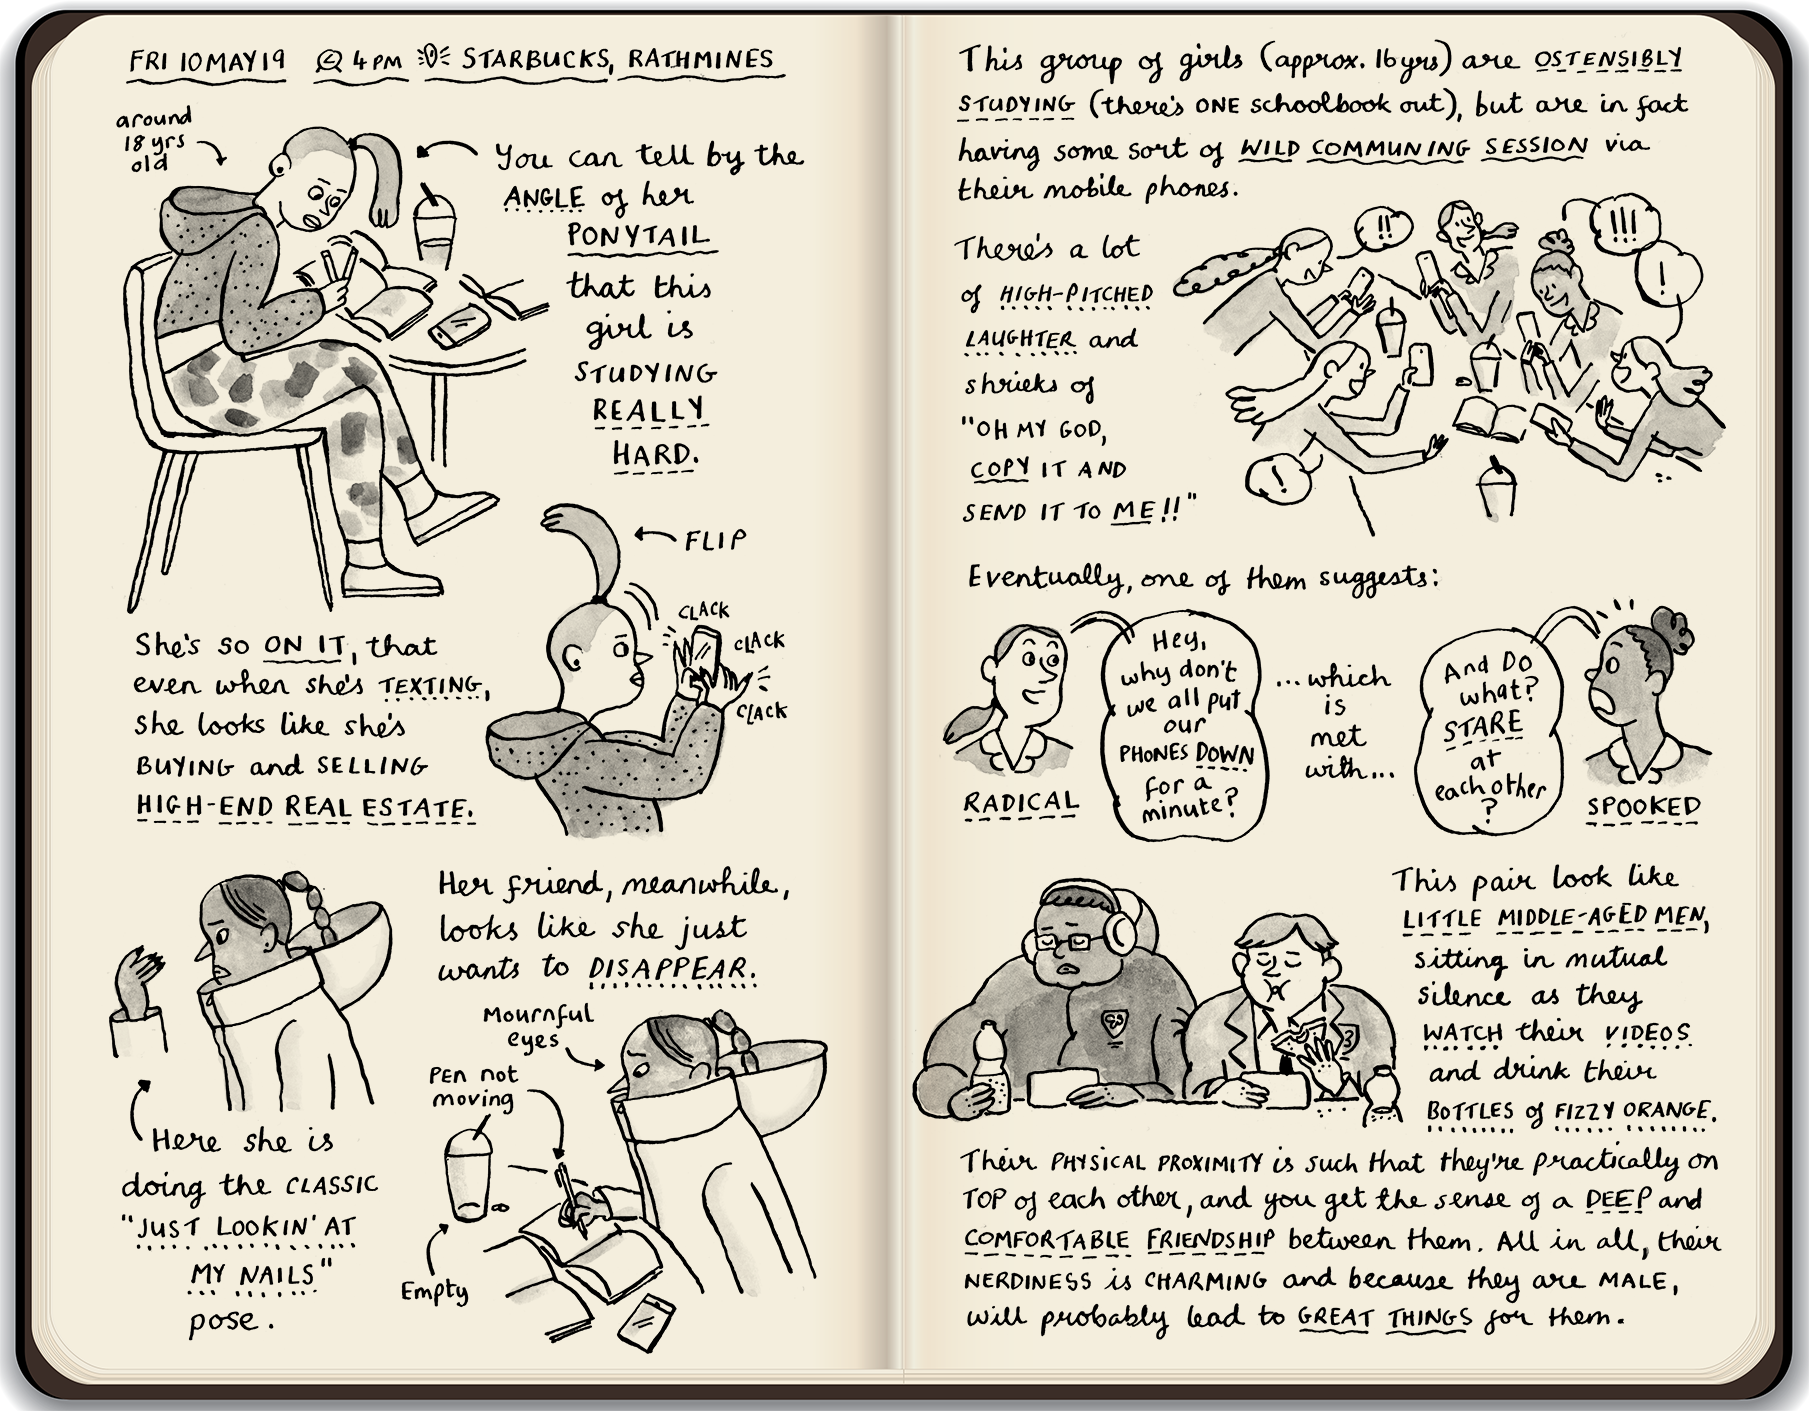 FRI 10 MAY 19 @ 4PM STARBUCKS, RATHMINES
around
18 yrs
old
You can tell by the
ANGLE of her
PONYTAIL
that this
girl is
STUDYING
REALLY
HARD.
FLIP
CLACK
CLACK
CLACK
She's so ON IT, that
even when she's TEXTING,
she looks like she's
BUYING and SELLING
HIGH-END REAL ESTATE.
Her friend, meanwhile,
looks like she just
wants to DISAPPEAR.
Here she is
doing the CLASSIC
"JUST LOOKIN' AT
MY NAILS"
pose.
Mournful
eyes
Pen not
moving
Empty
This group of girls (approx. 16 yrs) are OSTENSIBLY
STUDYING (there's ONE schoolbook out), but are in fact
having some sort of WILD COMMUNING SESSION via
their mobile phones.
There's a lot
of HIGH-PITCHED
LAUGHTER and
shrieks of
"OH MY GOD,
COPY IT AND
SEND IT TO ME!!"
!!
!!!
!
!
Eventually, one of them suggests:
Hey,
why don't
we all put
our
PHONES DOWN
for a
minute?
RADICAL
...which
is
met
with...
And DO
what?
STARE
at
each other
?
SPOOKED
This pair look like
LITTLE MIDDLE-AGED MEN,
sitting in mutual
silence as they
WATCH their VIDEOS
and drink their
BOTTLES of FIZZY ORANGE.
Their PHYSICAL PROXIMITY is such that they're practically on
TOP of each other, and you get the sense of a DEEP and
COMFORTABLE FRIENDSHIP between them. All in all, their
NERDINESS is CHARMING and because they are MALE,
will probably lead to GREAT THINGS for them.